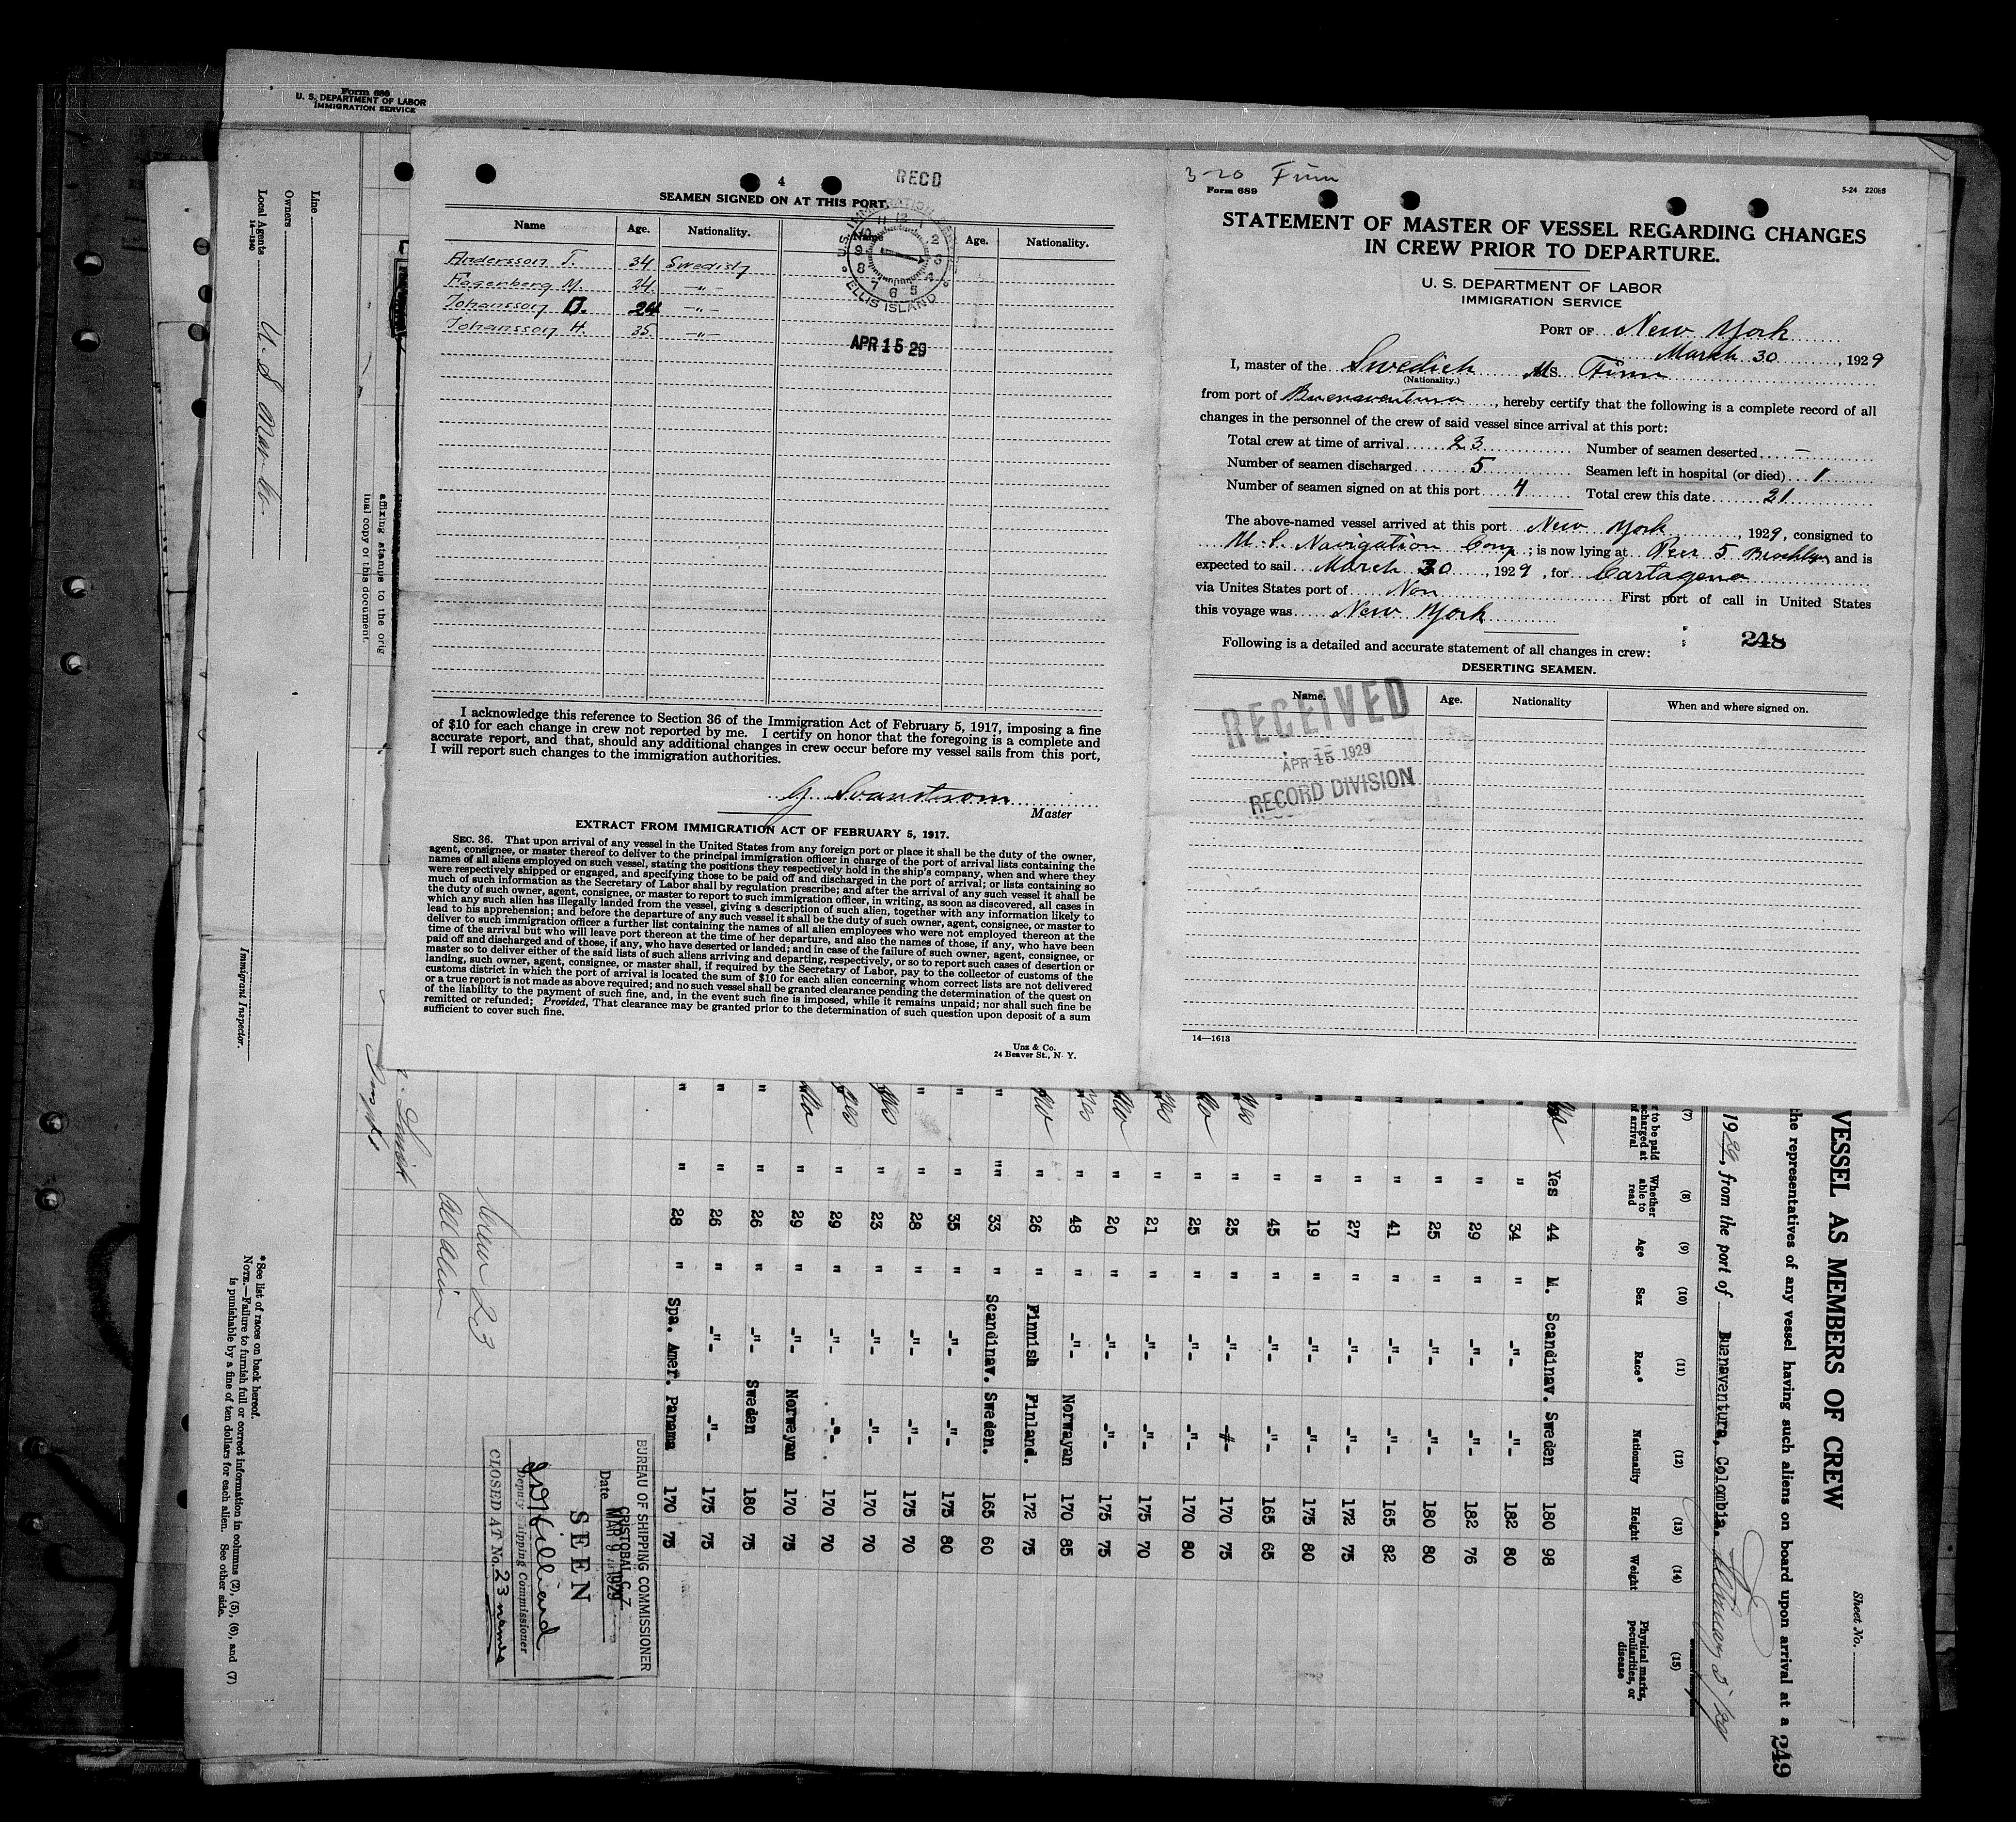 Form 680
U. S. DEPARTMENT OF LABOR
IMMIGRATION SERVICE
Line
Owners
Local Agents U. S. Nav. Co.
14—1240
Immigrant Inspector.
affixing stamps to the orig
inal copy of this document.
4
RECD
SEAMEN SIGNED ON AT THIS PORT.
Name Age. Nationality. Name Age. Nationality.
Andersson T. 34 Swedish
Fagerberg M. 24 —"—
Johansson O. 24 —"—
Johansson H. 35 —"—
U.S. IMMIGRATION SERVICE
ELLIS ISLAND
APR 15 29
I acknowledge this reference to Section 36 of the Immigration Act of February 5, 1917, imposing a fine
of $10 for each change in crew not reported by me. I certify on honor that the foregoing is a complete and
accurate report, and that, should any additional changes in crew occur before my vessel sails from this port,
I will report such changes to the immigration authorities.
G. Svanstrom
Master
EXTRACT FROM IMMIGRATION ACT OF FEBRUARY 5, 1917.
SEC. 36. That upon arrival of any vessel in the United States from any foreign port or place it shall be the duty of the owner,
agent, consignee, or master thereof to deliver to the principal immigration officer in charge of the port of arrival lists containing the
names of all aliens employed on such vessel, stating the positions they respectively hold in the ship's company, when and where they
were respectively shipped or engaged, and specifying those to be paid off and discharged in the port of arrival; or lists containing so
much of such information as the Secretary of Labor shall by regulation prescribe; and after the arrival of any such vessel it shall be
the duty of such owner, agent, consignee, or master to report to such immigration officer, in writing, as soon as discovered, all cases in
which any such alien has illegally landed from the vessel, giving a description of such alien, together with any information likely to
lead to his apprehension; and before the departure of any such vessel it shall be the duty of such owner, agent, consignee, or master to
deliver to such immigration officer a further list containing the names of all alien employees who were not employed thereon at the
time of the arrival but who will leave port thereon at the time of her departure, and also the names of those, if any, who have been
paid off and discharged and of those, if any, who have deserted or landed; and in case of the failure of such owner, agent, consignee, or
master so to deliver either of the said lists of such aliens arriving and departing, respectively, or so to report such cases of desertion or
landing, such owner, agent, consignee, or master shall, if required by the Secretary of Labor, pay to the collector of customs of the
customs district in which the port of arrival is located the sum of $10 for each alien concerning whom correct lists are not delivered
or a true report is not made as above required; and no such vessel shall be granted clearance pending the determination of the quest on
of the liability to the payment of such fine, and, in the event such fine is imposed, while it remains unpaid; nor shall such fine be
remitted or refunded; Provided, That clearance may be granted prior to the determination of such question upon deposit of a sum
sufficient to cover such fine.
Unz & Co.
24 Beaver St., N. Y.
3-20 Finn
Form 689
5-24 22068
STATEMENT OF MASTER OF VESSEL REGARDING CHANGES
IN CREW PRIOR TO DEPARTURE.
U. S. DEPARTMENT OF LABOR
IMMIGRATION SERVICE
PORT OF New York
March 30, 1929
I, master of the Swedish MS. Finn
(Nationality.)
from port of Buenaventura, hereby certify that the following is a complete record of all
changes in the personnel of the crew of said vessel since arrival at this port:
Total crew at time of arrival 23 Number of seamen deserted —
Number of seamen discharged 5 Seamen left in hospital (or died) 1
Number of seamen signed on at this port 4 Total crew this date 21
The above-named vessel arrived at this port New York, 1929, consigned to
U. S. Navigation Comp; is now lying at Pier 5 Brooklyn, and is
expected to sail March 30, 1929, for Cartagena
via Unites States port of Non First port of call in United States
this voyage was New York
248
Following is a detailed and accurate statement of all changes in crew:
DESERTING SEAMEN.
Name. Age. Nationality When and where signed on.
RECEIVED
APR 15 1929
RECORD DIVISION
14—1613
VESSEL AS MEMBERS OF CREW
Sheet No.
the representatives of any vessel having such aliens on board upon arrival at a 249
1929, from the port of Buenaventura, Colombia. February 3/29
(7) (8) (9) (10) (11) (12) (13) (14) (15)
r to be paid
scharged at
of arrival
Whether able to read Age Sex Race* Nationality Height Weight Physical marks, peculiarities, or disease
Yes 44 M. Scandinav. Sweden 180 98
" 34 " -"- -"- 182 80
" 29 " -"- -"- 182 76
" 25 " -"- -"- 180 80
" 41 " -"- -"- 165 82
" 27 " -"- -"- 172 75
" 19 " -"- -"- 175 80
" 45 " -"- -"- 165 65
" 25 " -"- -"- 170 75
" 25 " -"- -"- 170 80
" 21 " -"- -"- 175 70
" 20 " -"- -"- 175 75
" 48 " -"- Norwayan 170 85
" 26 " Finnish Finland. 172 75
" 33 " Scandinav. Sweden. 165 60
" 35 " -"- -"- 175 80
" 28 " -"- -"- 175 70
" 23 " -"- -"- 170 70
" 29 " -"- -"- 170 70
" 29 " -"- Norweyan 170 75
" 26 " -"- Sweden 180 75
" 26 " -"- -"- 175 75
" 28 " Spa. Amer. Panama 170 75
BUREAU OF SHIPPING COMMISSIONER
CRISTOBAL C. Z
Date MAR 9 1929
SEEN
Deputy Shipping Commissioner
CLOSED AT No. 23 names
Crew 23
All Alien
*See list of races on back hereof.
NOTE.—Failure to furnish full or correct information in columns (2), (5), (6), and (7)
is punishable by a fine of ten dollars for each alien. See other side.